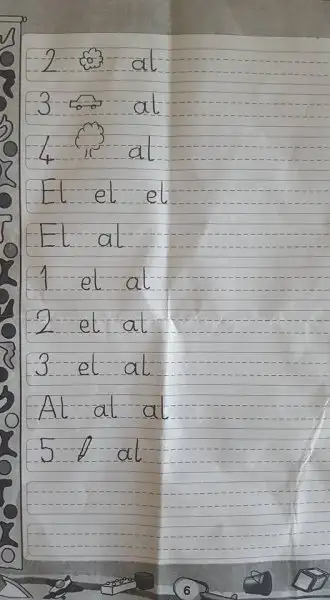 2 al
3 al
4 al
El el el
El al
1 el al
2 el al
3 el al
Al al al
5 al
6